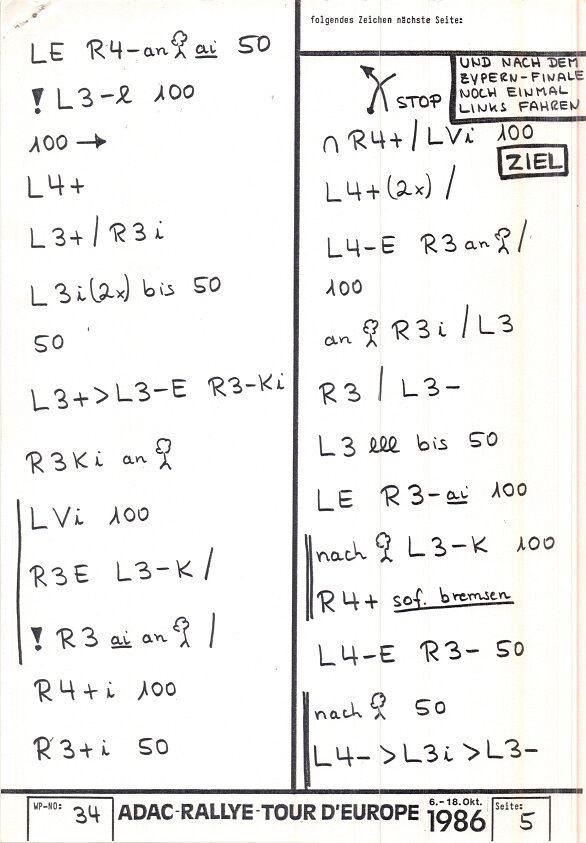 LE R4-an ai 50
! L3-l 100
100 →
L4+
L3+/R3i
L3i(2x) bis 50
50
L3+>L3-E R3-Ki
R3Ki an
LVi 100
R3E L3-K/
! R3 ai an /
R4+i 100
R3+i 50
folgendes Zeichen nächste Seite:
STOP
UND NACH DEM
ZYPERN-FINALE
NOCH EINMAL
LINKS FAHREN
∩ R4+/LVi 100
ZIEL
L4+(2x) /
L4-E R3 an /
100
an R3i / L3
R3 / L3-
L3 lll bis 50
LE R3-ai 100
nach L3-K 100
R4+ sof. bremsen
L4-E R3- 50
nach 50
L4->L3i>L3-
WP-NO: 34
ADAC-RALLYE-TOUR D'EUROPE 6.-18. Okt. 1986
Seite: 5